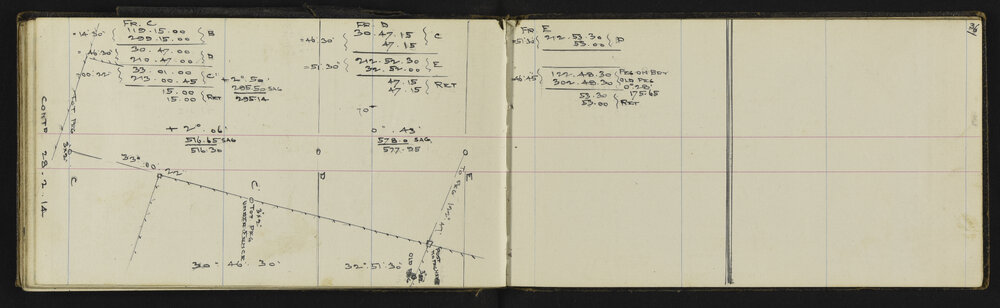 FR. C
= 14' 30" { 119. 15. 00 } B
299. 15. 00
= 46' 30" { 30. 47. 00 } D
210. 47. 00
= 00' 22" { 33. 01. 00 } C'
213. 00. 45
15. 00 } RET
15. 00
+ 2° 50'
295.50 SAG
295.14
+ 2°. 06'
516.65 SAG
516.30
FR D
= 46' 30" { 30. 47. 15 } C
47. 15
= 51' 30" { 212. 52. 30 } E
32. 52. 00
47. 15 } RET
47. 15
0°. 43'
578.0 SAG
577.95
FR E
= 51' 30" { 212. 53. 30 } D
53. 00
46' 45" { 122. 48. 30 } PEG ON BDY
302. 48. 30 OLD PEG
0° 28'
53. 30 } 175.65
53. 00 RET
3/6
CONTD 28.2.14
TOT PEG
3x3
C
33° 00' 22"
C'
3x3
TOT PEG
UNDER FENCE
D
E
TO PEG 122° 47'
POST
OLD PEG
30° 46' 30"
32° 51' 30"